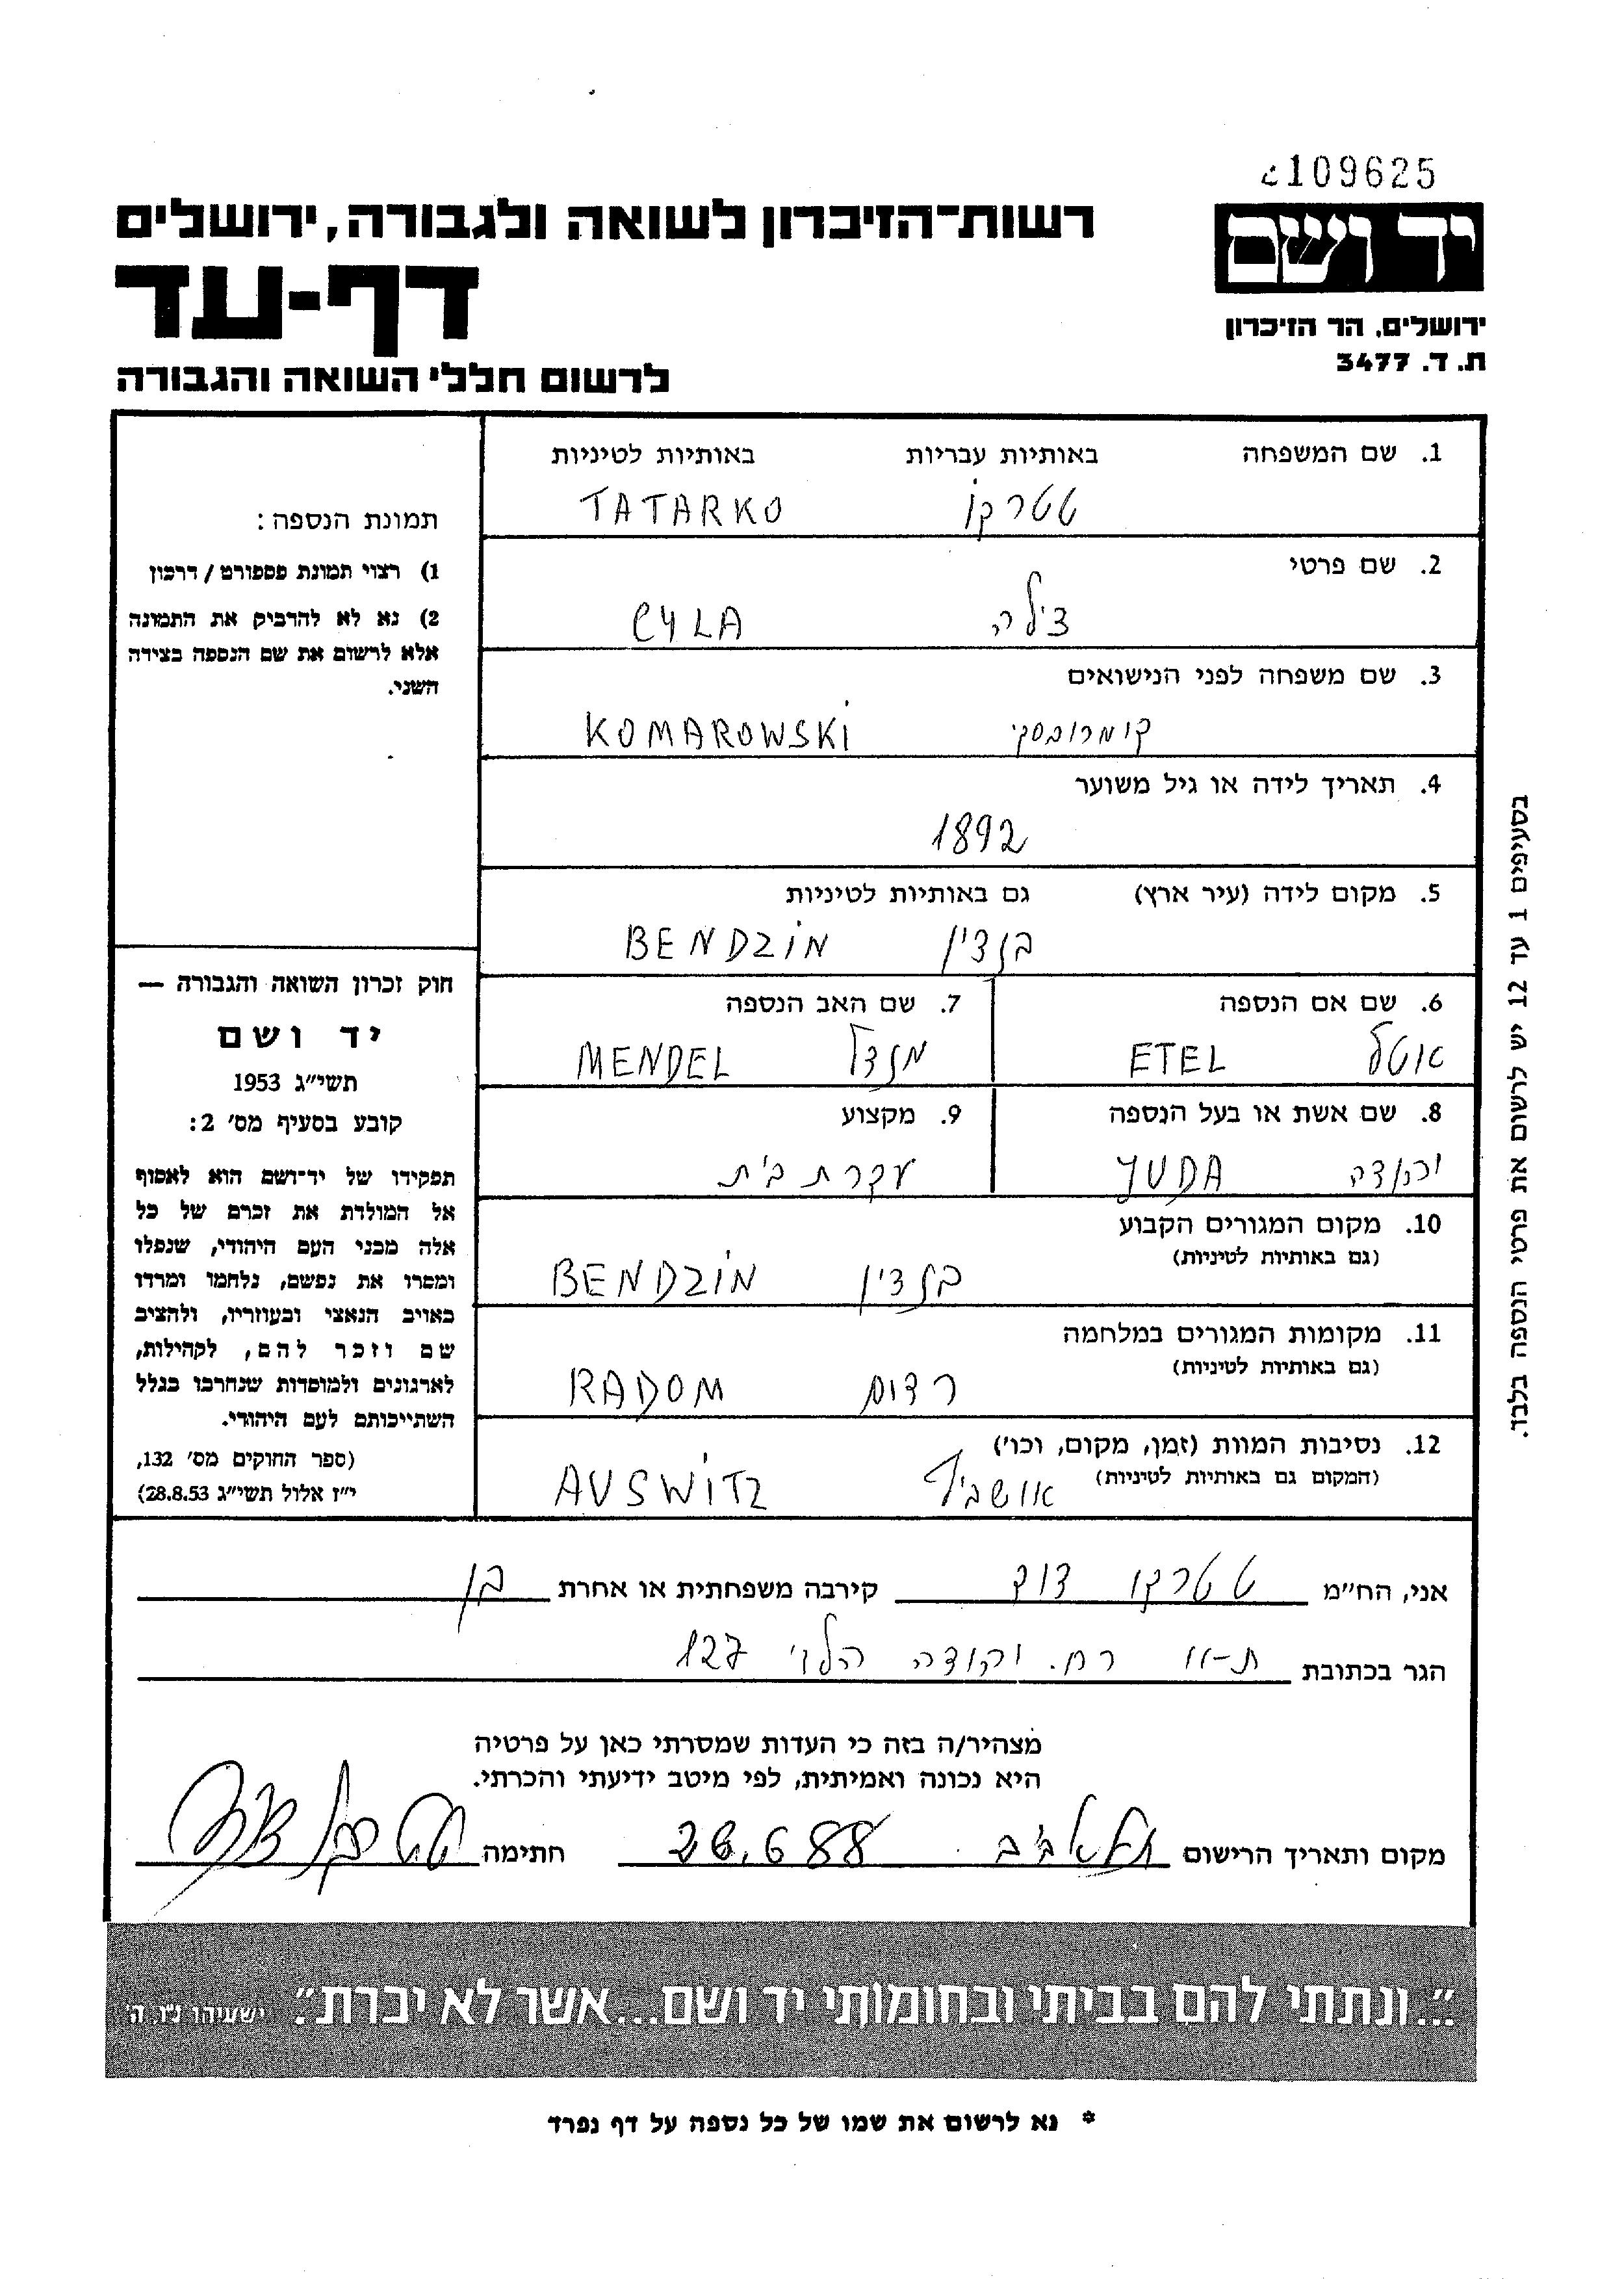 109625
יד ושם
ירושלים, הר הזיכרון
ת. ד. 3477
רשות-הזיכרון לשואה ולגבורה, ירושלים
דף-עד
לרשום חללי השואה והגבורה
1. שם המשפחה באותיות עבריות באותיות לטיניות
טטרקו TATARKO
2. שם פרטי
צילה CYLA
3. שם משפחה לפני הנישואים
קומרובסקי KOMAROWSKI
4. תאריך לידה או גיל משוער
1892
5. מקום לידה (עיר ארץ) גם באותיות לטיניות
בנדzין BENDZIN
6. שם אם הנספה 7. שם האב הנספה
אטל ETEL מנדל MENDEL
8. שם אשת או בעל הנספה 9. מקצוע
יהודה YUDA עקרת בית
10. מקום המגורים הקבוע
(גם באותיות לטיניות)
בנדין BENDZIN
11. מקומות המגורים במלחמה
(גם באותיות לטיניות)
רדום RADOM
12. נסיבות המוות (זמן, מקום, וכו')
(המקום גם באותיות לטיניות)
אושביץ AUSWITZ
תמונת הנספה:
1) רצוי תמונת פספורט / דרכון
2) נא לא להדביק את התמונה
אלא לרשום את שם הנספה בצידה
השני.
חוק זכרון השואה והגבורה —
יד ושם
תשי"ג 1953
קובע בסעיף מס' 2:
תפקידו של יד-ושם הוא לאסוף
אל המולדת את זכרם של כל
אלה מבני העם היהודי, שנפלו
ומסרו את נפשם, נלחמו ומרדו
באויב הנאצי ובעוזריו, ולהציב
שם וזכר להם, לקהילות,
לארגונים ולמוסדות שנחרבו בגלל
השתייכותם לעם היהודי.
(ספר החוקים מס' 132,
י"ז אלול תשי"ג 28.8.53)
בסעיפים 1 עד 12 יש לרשום את פרטי הנספה בלבד.
אני, הח"מ טטרקו דוד קירבה משפחתית או אחרת בן
הגר בכתובת ת-א רח. יהודה הלוי 127
מצהיר/ה בזה כי העדות שמסרתי כאן על פרטיה
היא נכונה ואמיתית, לפי מיטב ידיעתי והכרתי.
מקום ותאריך הרישום תל אביב 28.6.88 חתימה טטרקו דוד
"...ונתתי להם בביתי ובחומותי יד ושם...אשר לא יכרת". ישעיהו נ"ו, ה'
* נא לרשום את שמו של כל נספה על דף נפרד